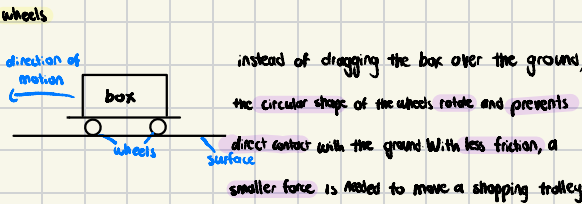 wheels
direction of
motion
box
wheels
surface
instead of dragging the box over the ground,
the circular shape of the wheels rotate and prevents
direct contact with the ground with less friction, a
smaller force is needed to move a shopping trolley